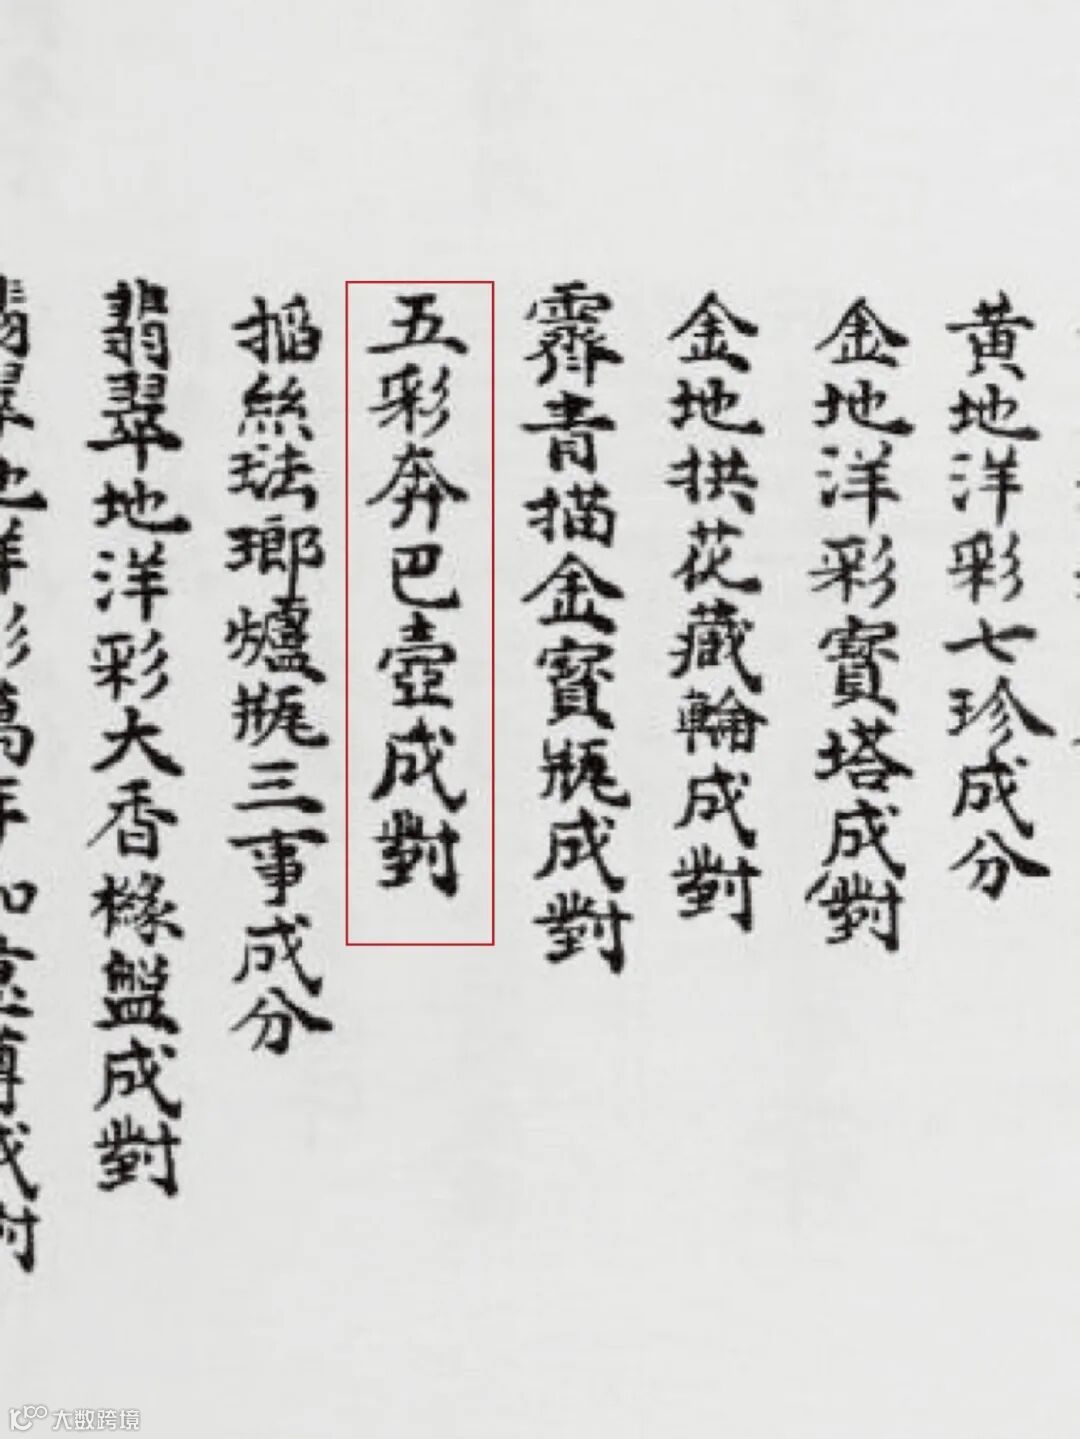 黃地洋彩七珍成分
金地洋彩寶塔成對
金地拱花藏輪成對
霽青描金寶瓶成對
五彩奔巴壺成對
掐絲琺瑯爐瓶三事成分
翡翠地洋彩大香櫞盤成對
翡翠地洋彩萬年如意尊成對
大数跨境